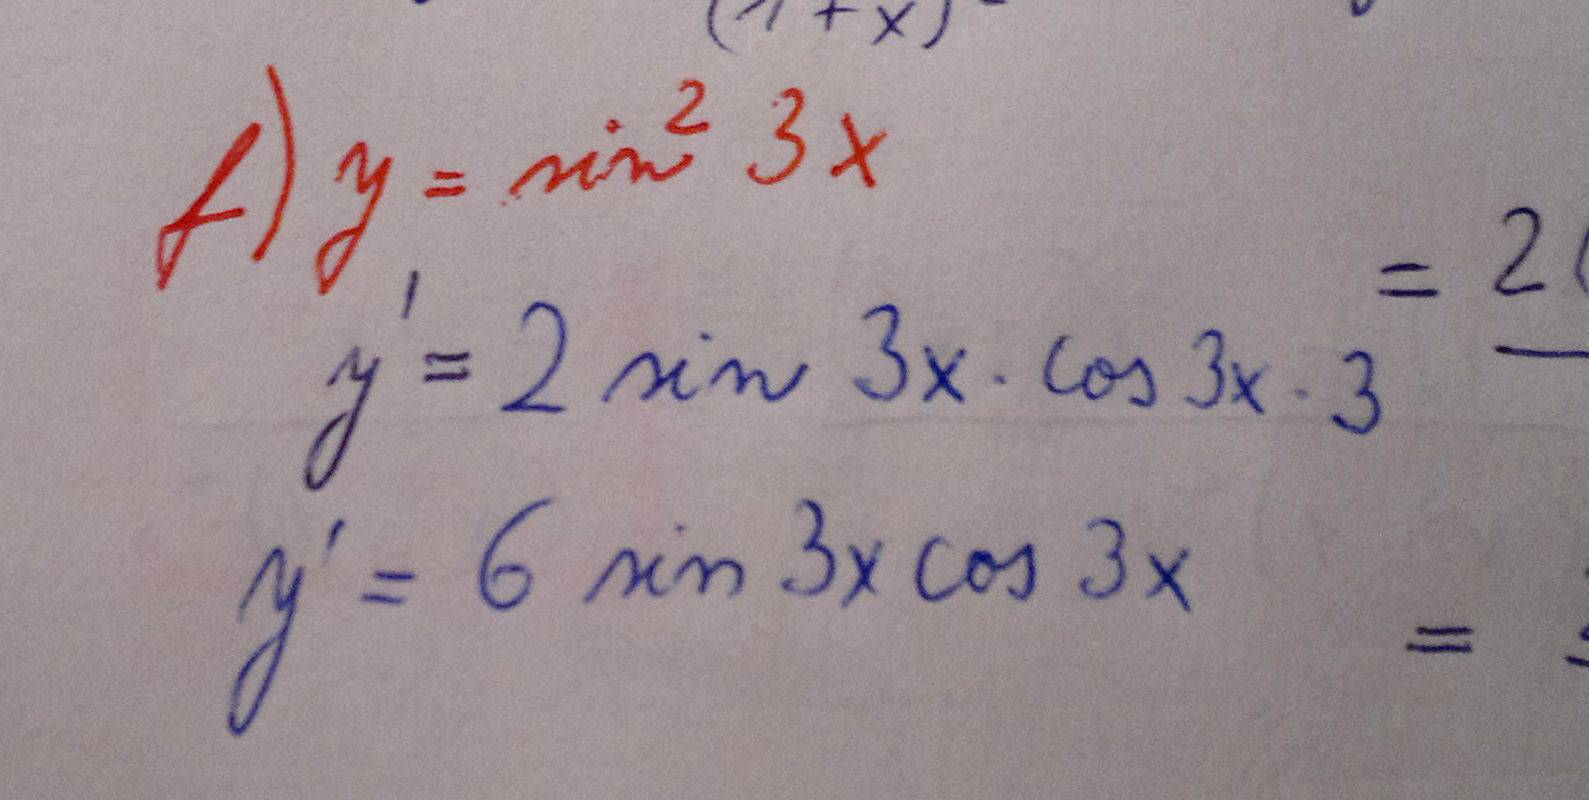 (1+x)
f) y = sin² 3x
y' = 2 sin 3x · cos 3x · 3
= 2(
y' = 6 sin 3x cos 3x
=